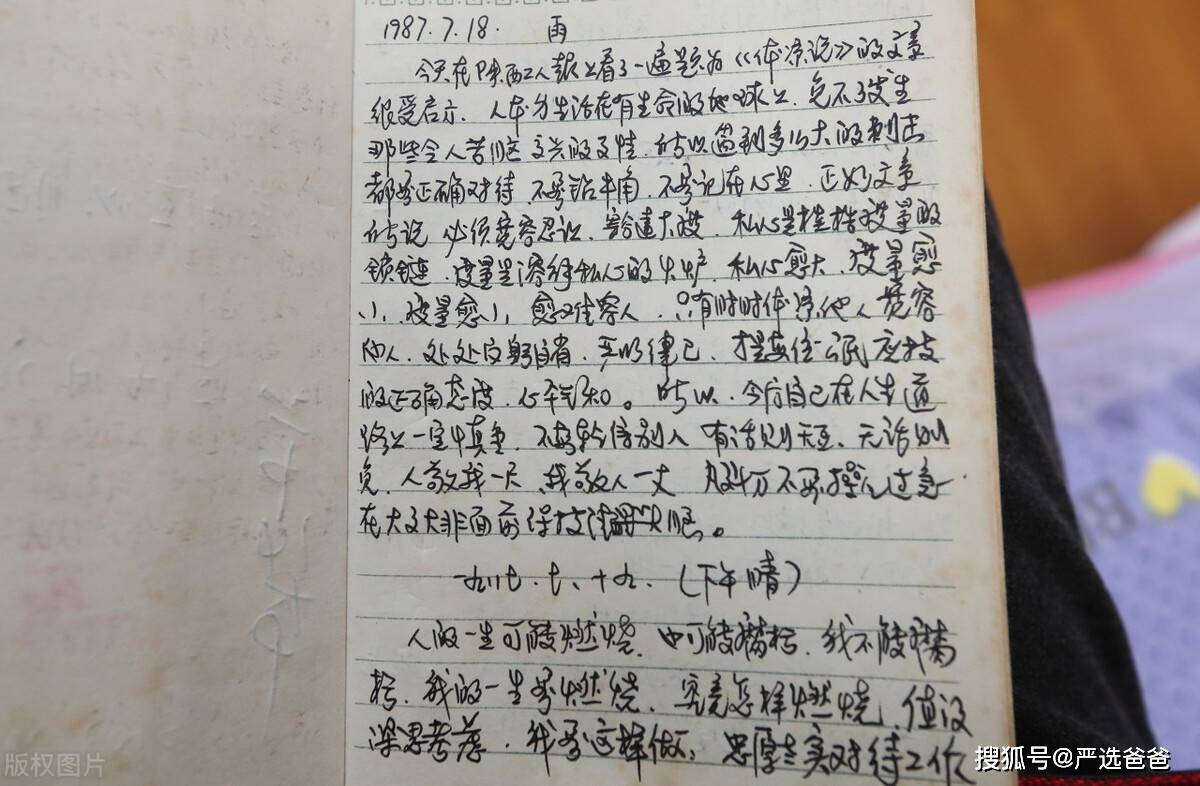 1987.7.18. 雨
今天在陕西工人报上看了一遍题为《体谅说》的文章
很受启示. 人本身生活在有生命的地球上. 免不了发生
那些令人苦恼 的事情. 所以遇到多么大的刺击
都要正确对待 不要钻牛角. 不要记在心里. 正如文章
所说 必须宽容忍让. 豁达大度. 私心是桎梏度量的
锁链. 度量是溶铸私心的火炉. 私心愈大. 度量愈
小. 度量愈小 愈 人. 只有时时体谅他人 宽容
他人. 处处 自省. 严以律己. 才是 应持
的正确态度. 心平气和。 所以. 今后自己在人生道
路上一定 慎重. 不要轻信别人 有话则 . 无话则
免. 人敬我一尺 我敬人一丈 办事 不要操之过急
在大是大非面前保持清醒头脑。
一九八七.七.十九. (下午晴)
人的一生可能燃烧. 也可能腐朽. 我不能腐
朽. 我的一生要燃烧. 究竟怎样燃烧. 值得
深思考虑. 我要这样做: 忠厚老实对待工作
版权图片
搜狐号@严选爸爸